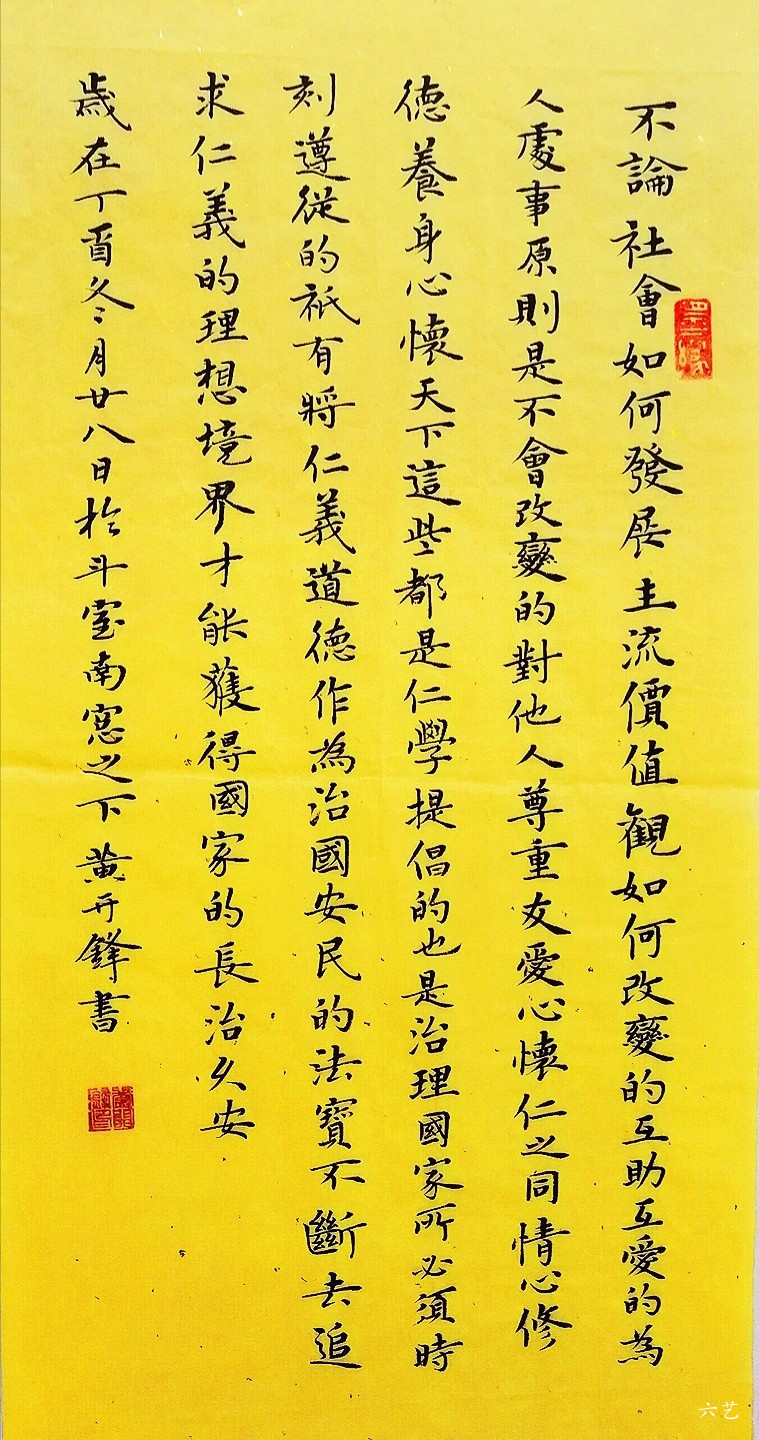 不論社會如何發展主流價值觀如何改變的互助互愛的為
人處事原則是不會改變的對他人尊重友愛心懷仁之同情心修
德養身心懷天下這些都是仁學提倡的也是治理國家所必須時
刻遵從的祇有將仁義道德作為治國安民的法寶不斷去追
求仁義的理想境界才能獲得國家的長治久安
歲在丁酉冬月廿八日於斗室南窓之下黄开鋒書
六艺